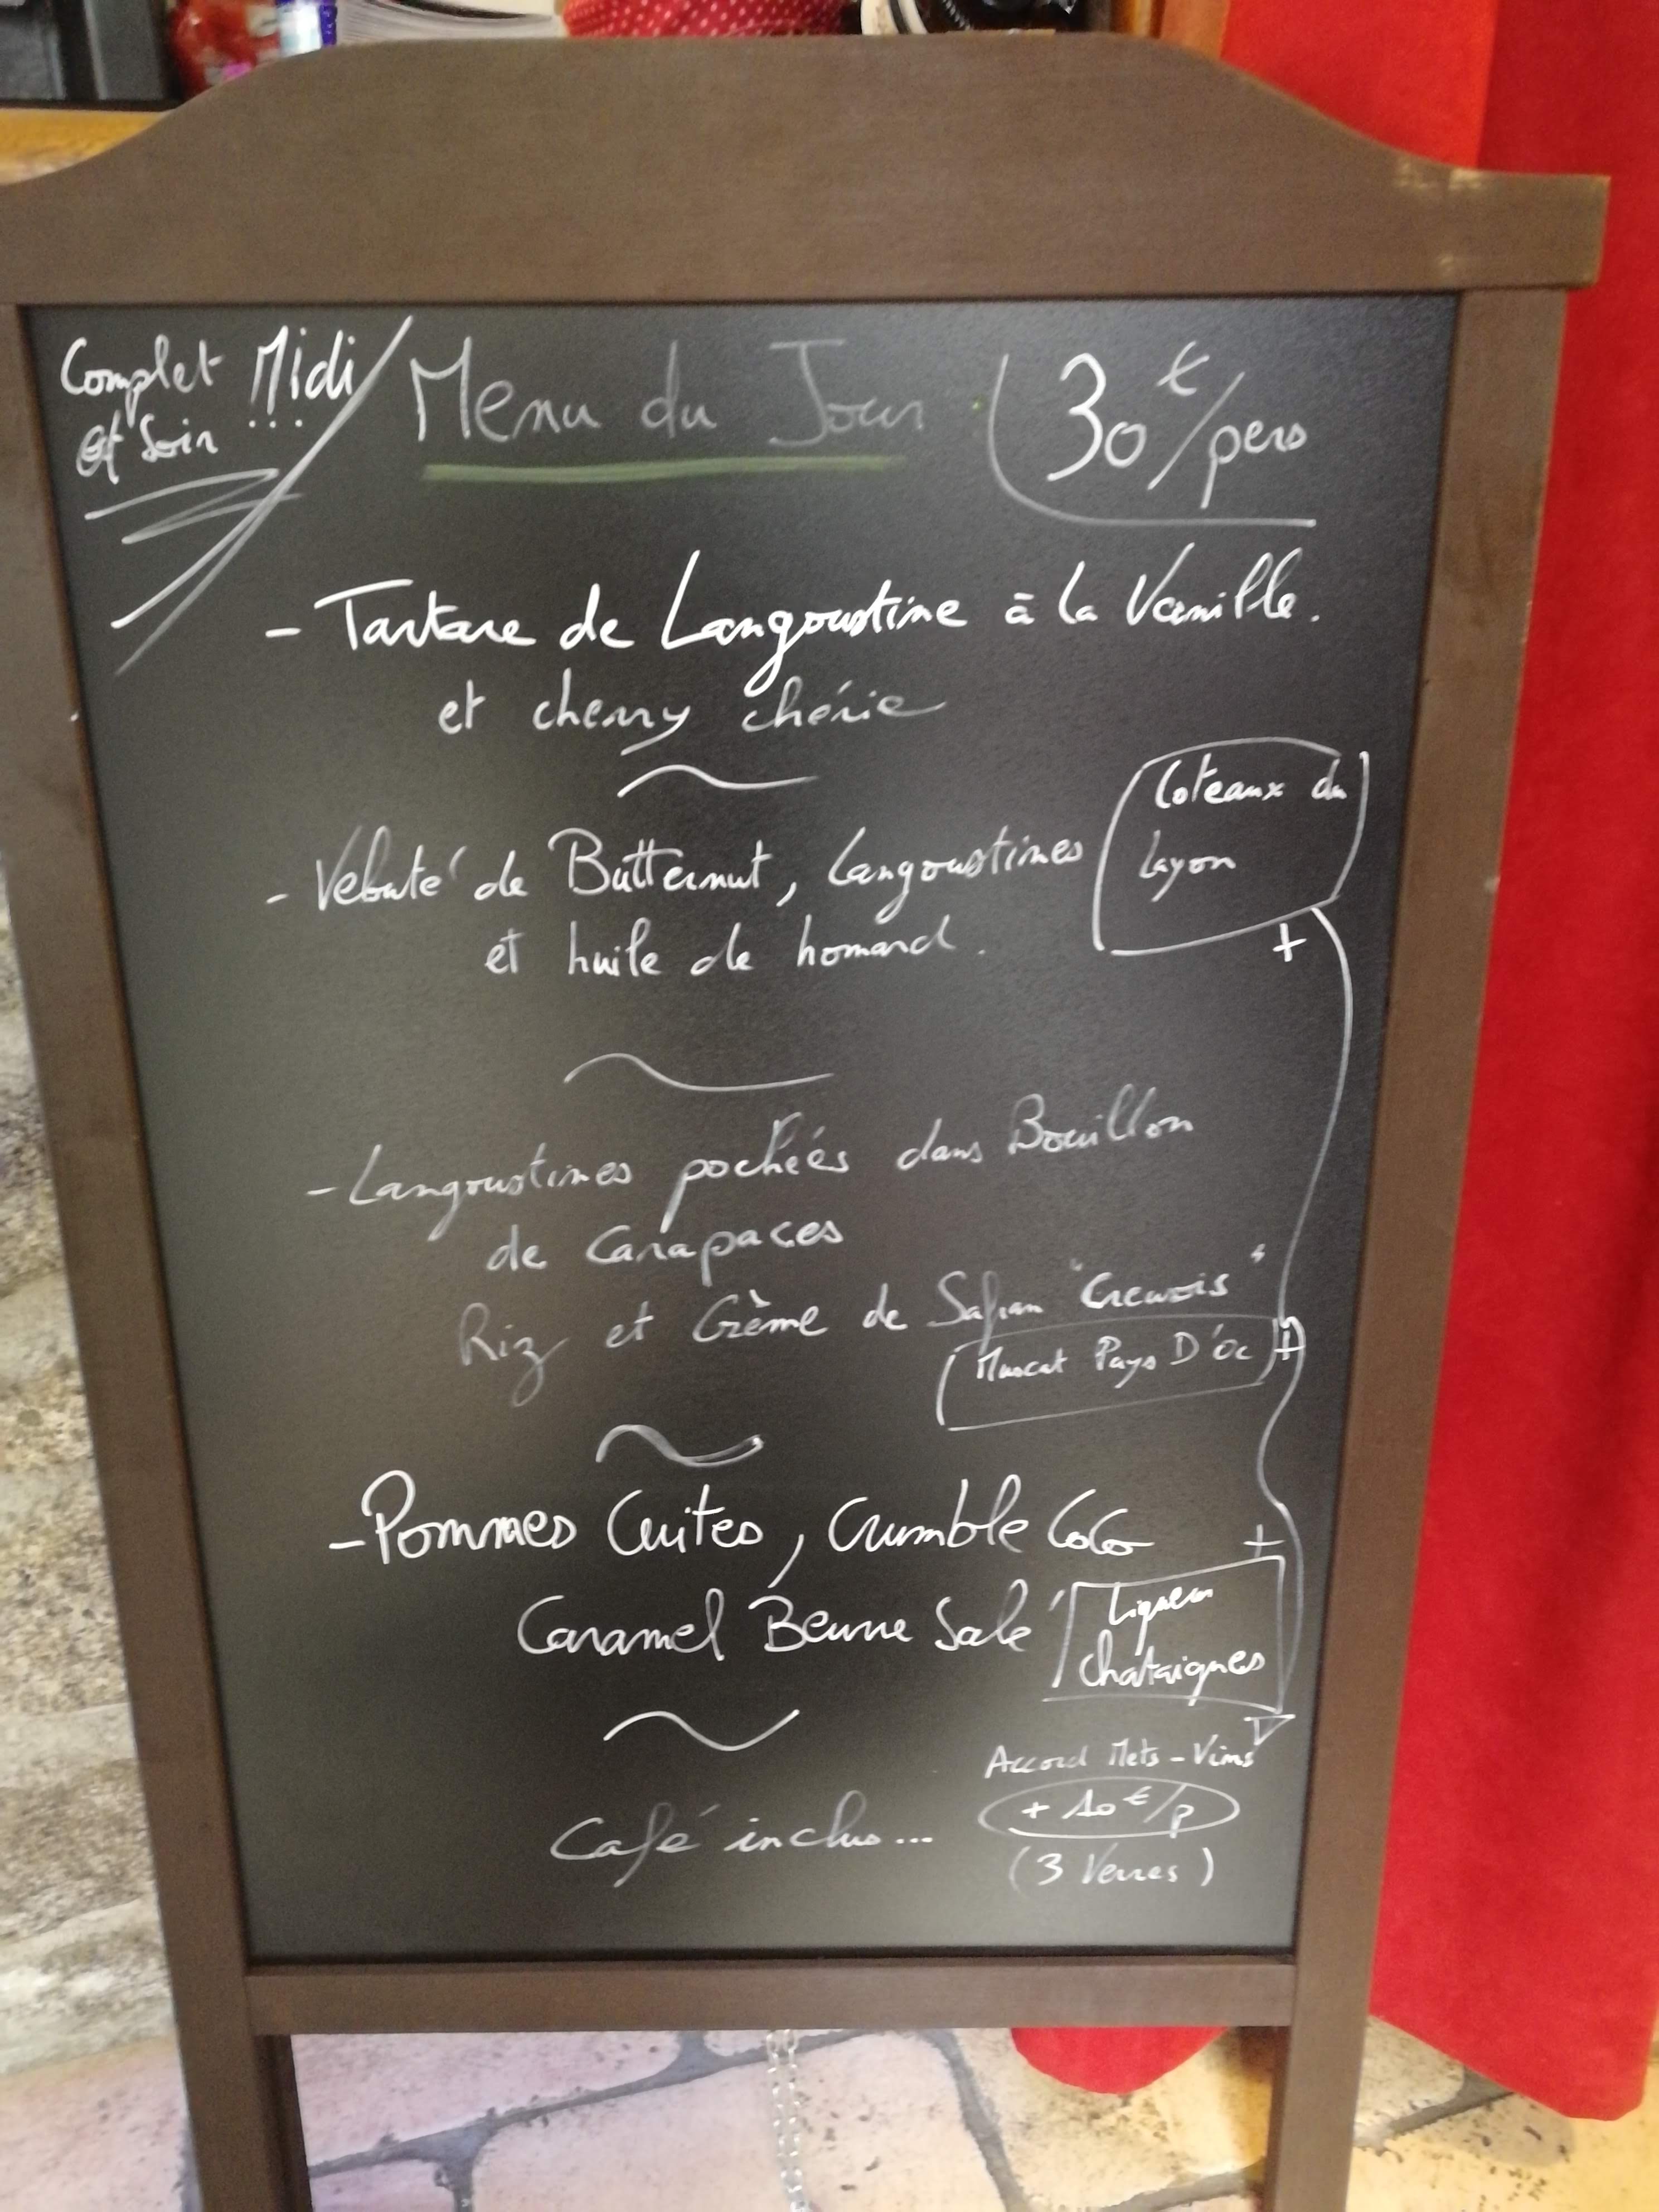 Complet Midi
et Soir ...
Menu du Jour
30€/pers
- Tartare de Langoustine à la Vanille.
et cherry chérie
- Velouté de Butternut, Langoustines
et huile de homard.
Coteaux du
Layon
+
- Langoustines pochées dans Bouillon
de Carapaces
Riz et Crème de Safran "Creusois"
Muscat Pays D'Oc +
- Pommes Cuites, Crumble CoCo
Caramel Beurre Salé
+
Liqueur
chataignes
Accord Mets - Vins
+ 10€/p
(3 Verres)
Café inclus...